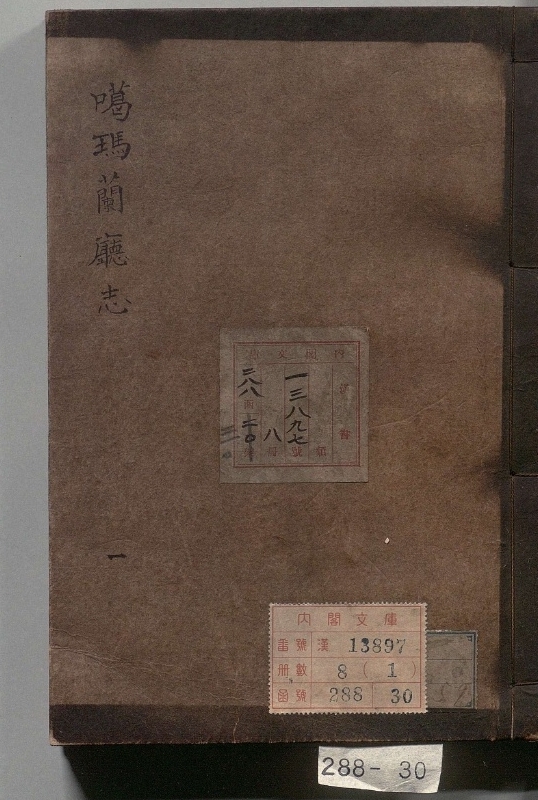 噶瑪蘭廳志
一
內閣文庫
漢書
一三八九七
號
八
二八八
二〇
三〇
內閣文庫
番號 漢 13897
冊數 8 ( 1 )
函號 288 30
288- 30